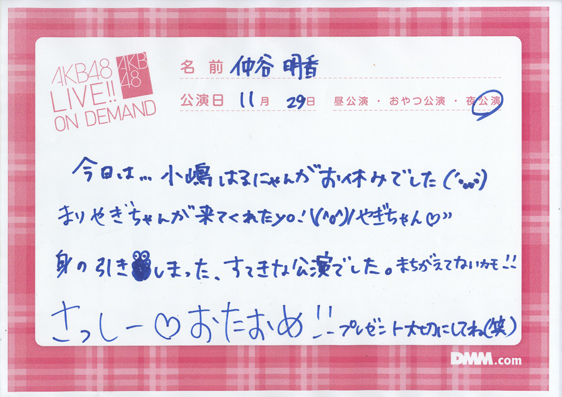 AKB48
LIVE!!
ON DEMAND
AKB
48
名前 仲谷明香
公演日 11月 29日 昼公演・おやつ公演・夜公演
今日は... 小嶋はるにゃんがお休みでした(´・ω・`)
まりやぎちゃんが来てくれたyo! \(^o^)/やぎちゃん♡"
身の引きしまった、すてきな公演でした。まちがえてないカモ!!
さっしー♡おたおめ!! プレゼント大切にしてね(笑)
DMM.com